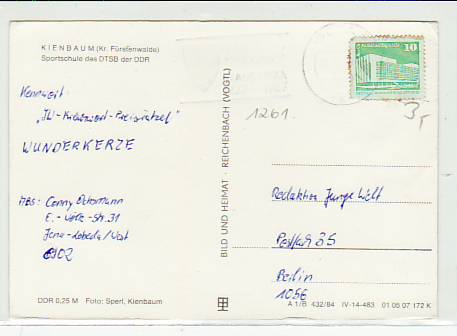 KIENBAUM (Kr. Fürstenwalde)
Sportschule des DTSB der DDR
Kennwort:
„JW-Kreuzwort-Preisrätsel"
WUNDERKERZE
ABS: Conny
Jena-Lobeda/West
6902
DDR 0,25 M Foto: Sperl, Kienbaum
BILD UND HEIMAT · REICHENBACH (VOGTL)
10
1261
Redaktion Junge Welt
Postfach 35
Berlin
1056
A 1/B 432/84 IV-14-483 01 05 07 172 K